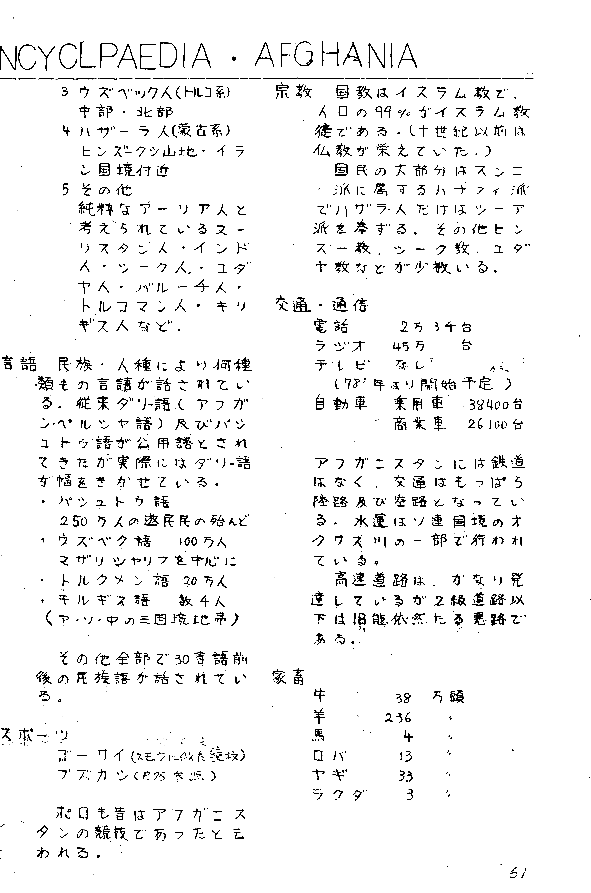 NCYCLPAEDIA・AFGHANIA
3 ウズベック人(トルコ系)
中部・北部
4 ハザーラ人(蒙古系)
ヒンズークシ山地・イラ
ン国境付近
5 その他
純粋なアーリア人と
考えられているヌー
リスタン人・インド
人・シーク人・ユダ
ヤ人・バルーチ人・
トルコマン人・キリ
ギス人など.
言語 民族・人種により何種
類もの言語が話されてい
る.従来ダリ語(アフガ
ン・ペルシャ語)及びパシ
ュトウ語が公用語とされ
てきたが実際にはダリ語
が幅をきかせている.
・パシュトウ語
250万人の遊牧民の殆んど
・ウズベク語 100万人
マザリシャリフを中心に
・トルクメン語 20万人
・キルギス語 数千人
(ア・ソ・中の三国境地帯)
その他全部で30言語前
後の民族語が話されてい
る.
スポーツ
ゴーサイ(スモウに似た競技)
ブズカシ
ポロも昔はアフガニス
タンの競技であったと云
われる.
宗教 国教はイスラム教で、
人口の99%がイスラム教
徒である.(十世紀以前は
仏教が栄えていた.)
国民の大部分はスンニ
ー派に属するハナフィ派
でハザラ人だけはシーア
派を奉ずる.その他ヒン
ズー教、シーク教、ユダ
ヤ教などが少数いる.
交通・通信
電話 2万3千台
ラジオ 45万 台
テレビ なし
(78年より開始予定)
自動車 乗用車 38400台
商業車 26100台
アフガニスタンには鉄道
はなく、交通はもっぱら
陸路及び空路となってい
る.水運はソ連国境のオ
クサス川の一部で行われ
ている.
高速道路は、かなり発
達しているが2級道路以
下は旧態依然たる悪路で
ある.
家畜
牛 38 万頭
羊 236 〃
馬 4 〃
ロバ 13 〃
ヤギ 33 〃
ラクダ 3 〃
61